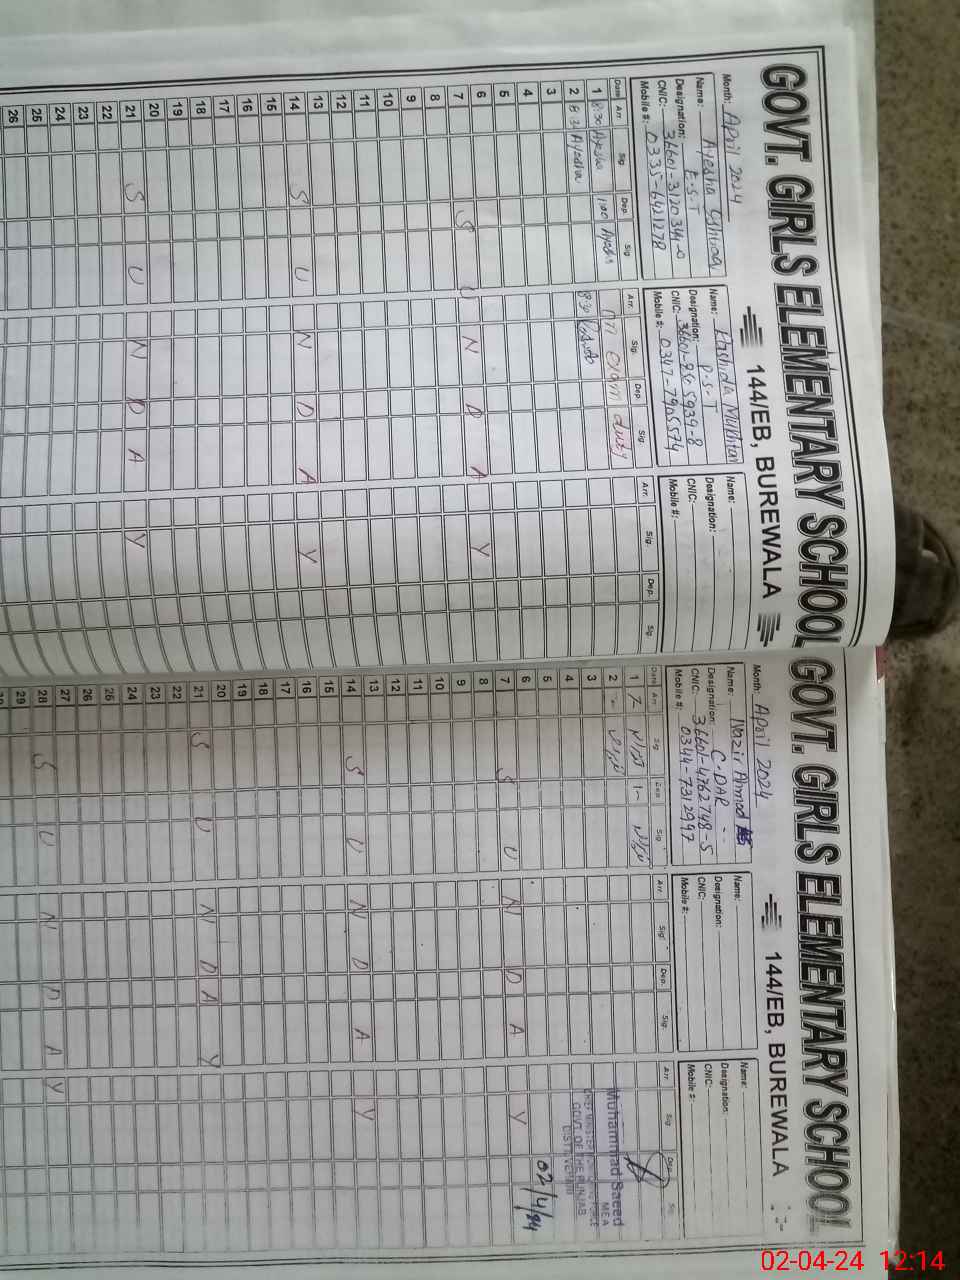 GOVT. GIRLS ELEMENTARY SCHOOL
144/EB, BUREWALA
Month: April 2024
Name: Ayesha
Designation: E.S.T
CNIC: 36601-3120344-0
Mobile #: 0335-6421278
Name: Rashida Mukhtar
Designation: P.S.T
CNIC: 36601-8565939-8
Mobile #: 0347-7905574
Name:
Designation:
CNIC:
Mobile #:
Date Arr. Sig. Dep. Sig. Arr. Sig. Dep. Sig. Arr. Sig. Dep. Sig.
1 8:30 Ayesha 1:00 Ayesha on exam duty
2 8:30 Ayesha 8:30
3
4
5
6
7 S U N D A Y
8
9
10
11
12
13
14 S U N D A Y
15
16
17
18
19
20
21 S U N D A Y
22
23
24
25
26
GOVT. GIRLS ELEMENTARY SCHOOL
144/EB, BUREWALA
Month: April 2024
Name: Nazir Ahmad
Designation: C.DAR
CNIC: 36601-4762748-5
Mobile #: 0344-7312997
Name:
Designation:
CNIC:
Mobile #:
Name:
Designation:
CNIC:
Mobile #:
Date Arr. Sig. Dep. Sig. Arr. Sig. Dep. Sig. Arr. Sig. Dep. Sig.
1
2
3
4
5
6
7 S U N D A Y
8
9
10
11
12
13
14 S U N D A Y
15
16
17
18
19
20
21 S U N D A Y
22
23
24
25
26
27
28 S U N D A Y
29
Muhammad Saeed
MEA
CHIEF MINISTER MONITORING FORCE
GOVT. OF THE PUNJAB
DISTT. VEHARI
02/4/24
02-04-24 12:14